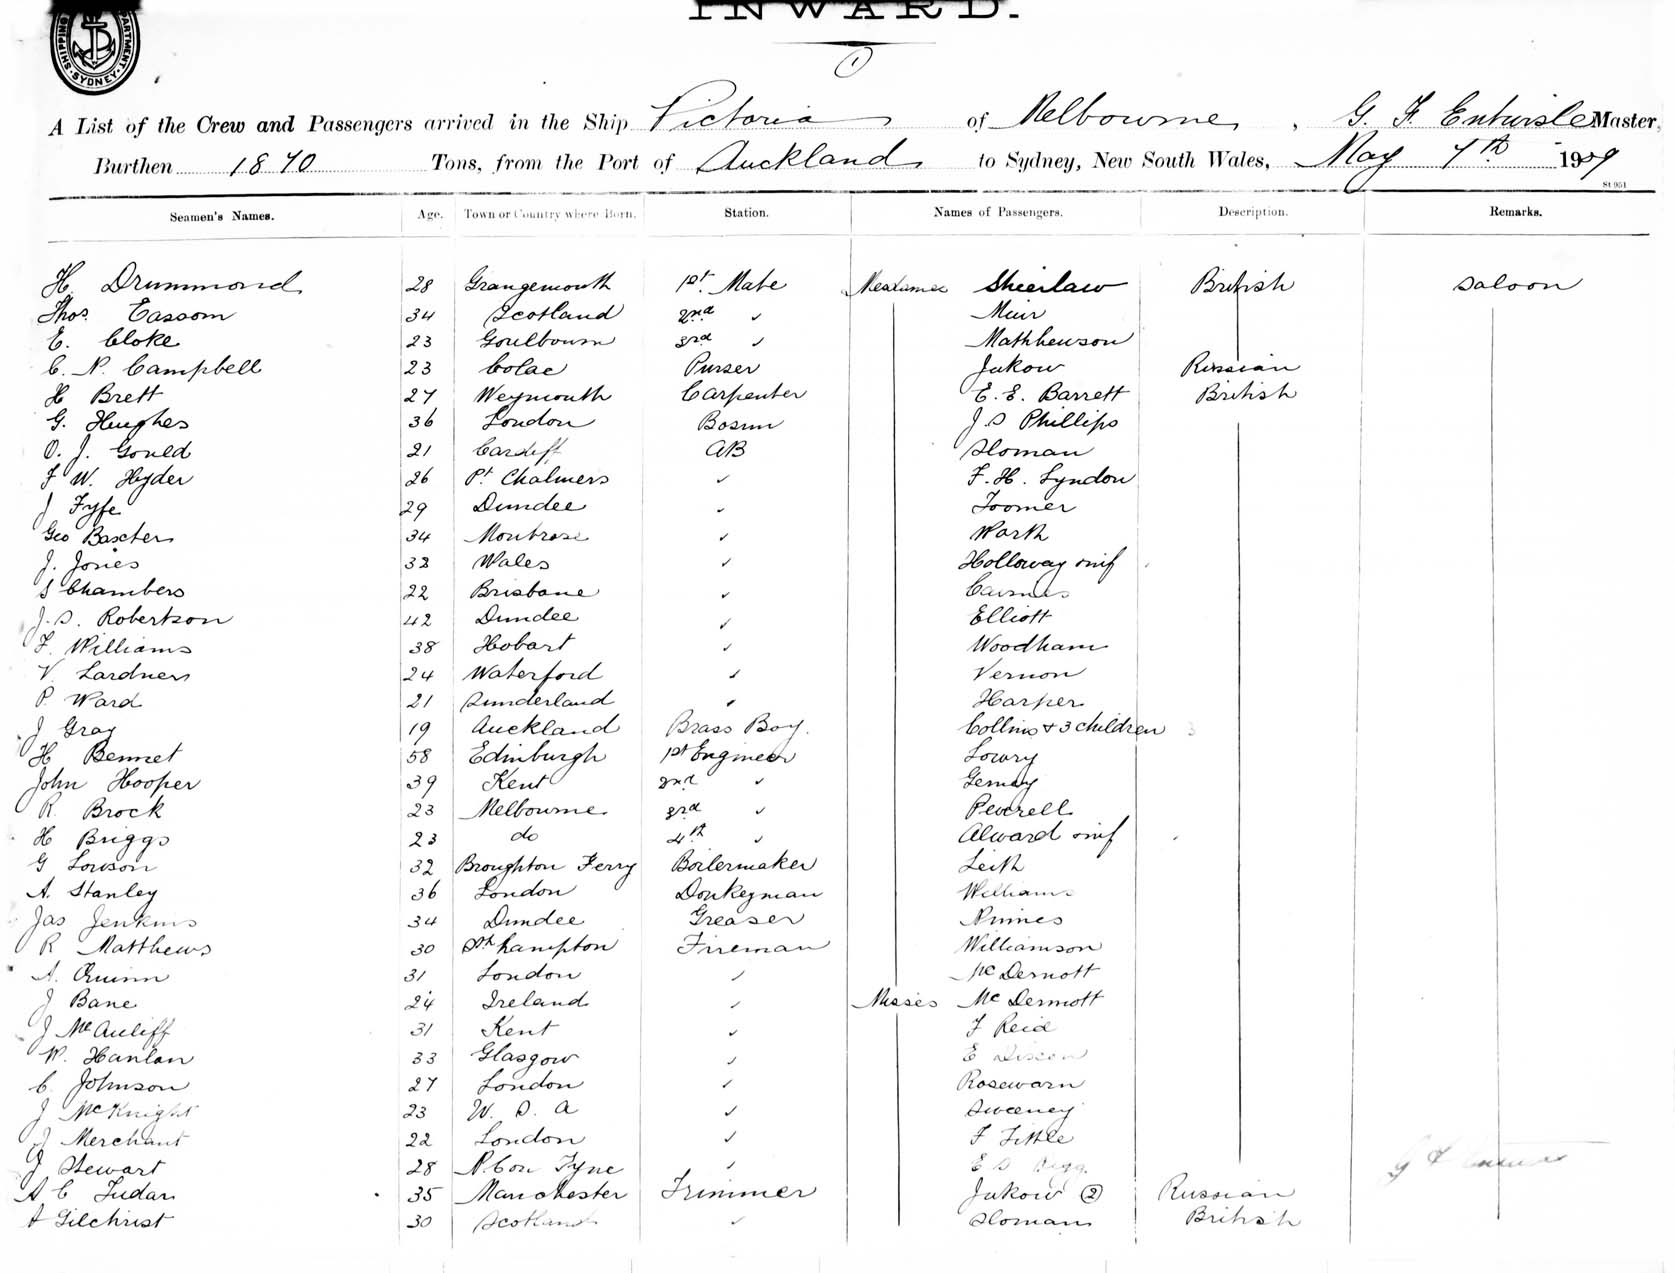 INWARD.
SHIPPING DEPARTMENT SYDNEY
1
A List of the Crew and Passengers arrived in the Ship Victoria of Melbourne, G. F. Entwisle Master,
Burthen 1870 Tons, from the Port of Auckland to Sydney, New South Wales, May 7th 1909
St 951
Seamen's Names. Age. Town or Country where Born. Station. Names of Passengers. Description. Remarks.
H. Drummond 28 Grangemouth 1st. Mate Mesdames Shierlaw British Saloon
Thos. Eassom 34 Scotland 2nd " Muir
E. Cloke 23 Goulbourn 3rd " Mathhewson
C. N. Campbell 23 Colac Purser Jukow Russian
H Brett 27 Weymouth Carpenter E. E. Barrett British
G. Hughes 36 London Bosun J. S Phillips
O. J. Gould 21 Cardiff AB Sloman
F W. Hyder 26 Pt Chalmers " F. H. Lyndon
J Fyfe 29 Dundee " Toomer
Geo Baxter 34 Montrose " Warth
J. Jones 32 Wales " Holloway & inf
S Chambers 22 Brisbane " Cairnes
J. S. Robertson 42 Dundee " Elliott
F. Williams 38 Hobart " Woodham
V. Lardner 24 Waterford " Vernon
P. Ward 21 Sunderland " Harper
J Gray 19 Auckland Brass Boy. Collins & 3 children 3
H Bennet 58 Edinburgh 1st Engineer Lowry
John Hooper 39 Kent 2nd "
R. Brock 23 Melbourne 3rd " Peverell
H Briggs 23 do 4th " Alward & inf
G Lowson 32 Broughton Ferry Boilermaker Leith
A. Stanley 36 London Donkeyman Williams
Jas Jenkins 34 Dundee Greaser
R Matthews 30 Sthhampton Fireman Williamson
A. Quinn 31 London " McDermott
J Bane 24 Ireland " Misses McDermott
J McAuliff 31 Kent " F Reid
W. Hanlan 33 Glasgow " E Dixon
C. Johnson 27 London " Rosewarn
J McKnight 23 W. S. A " Sweeney
J Merchant 22 London " F Tittle
J Stewart 28 N. C on Tyne " E S
A C Tudar 35 Manchester Trimmer Jukow (2) Russian
A Gilchrist 30 Scotland " Sloman British